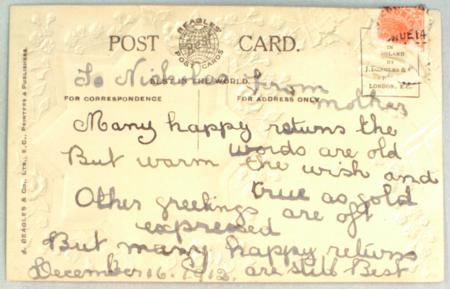 BEAGLES'
POST CARDS
POST CARD.
BEST IN THE WORLD.
To From
mother
FOR CORRESPONDENCE FOR ADDRESS ONLY.
Many happy returns the
words are old
But warm the wish and
true as gold
Other greetings are oft
expressed
But many happy returns
December 16. 1912. are still Best
J. BEAGLES & Co., LTD., E.C., PRINTERS & PUBLISHERS.
IN
J. BEAGLES & C
LONDON, E.C.